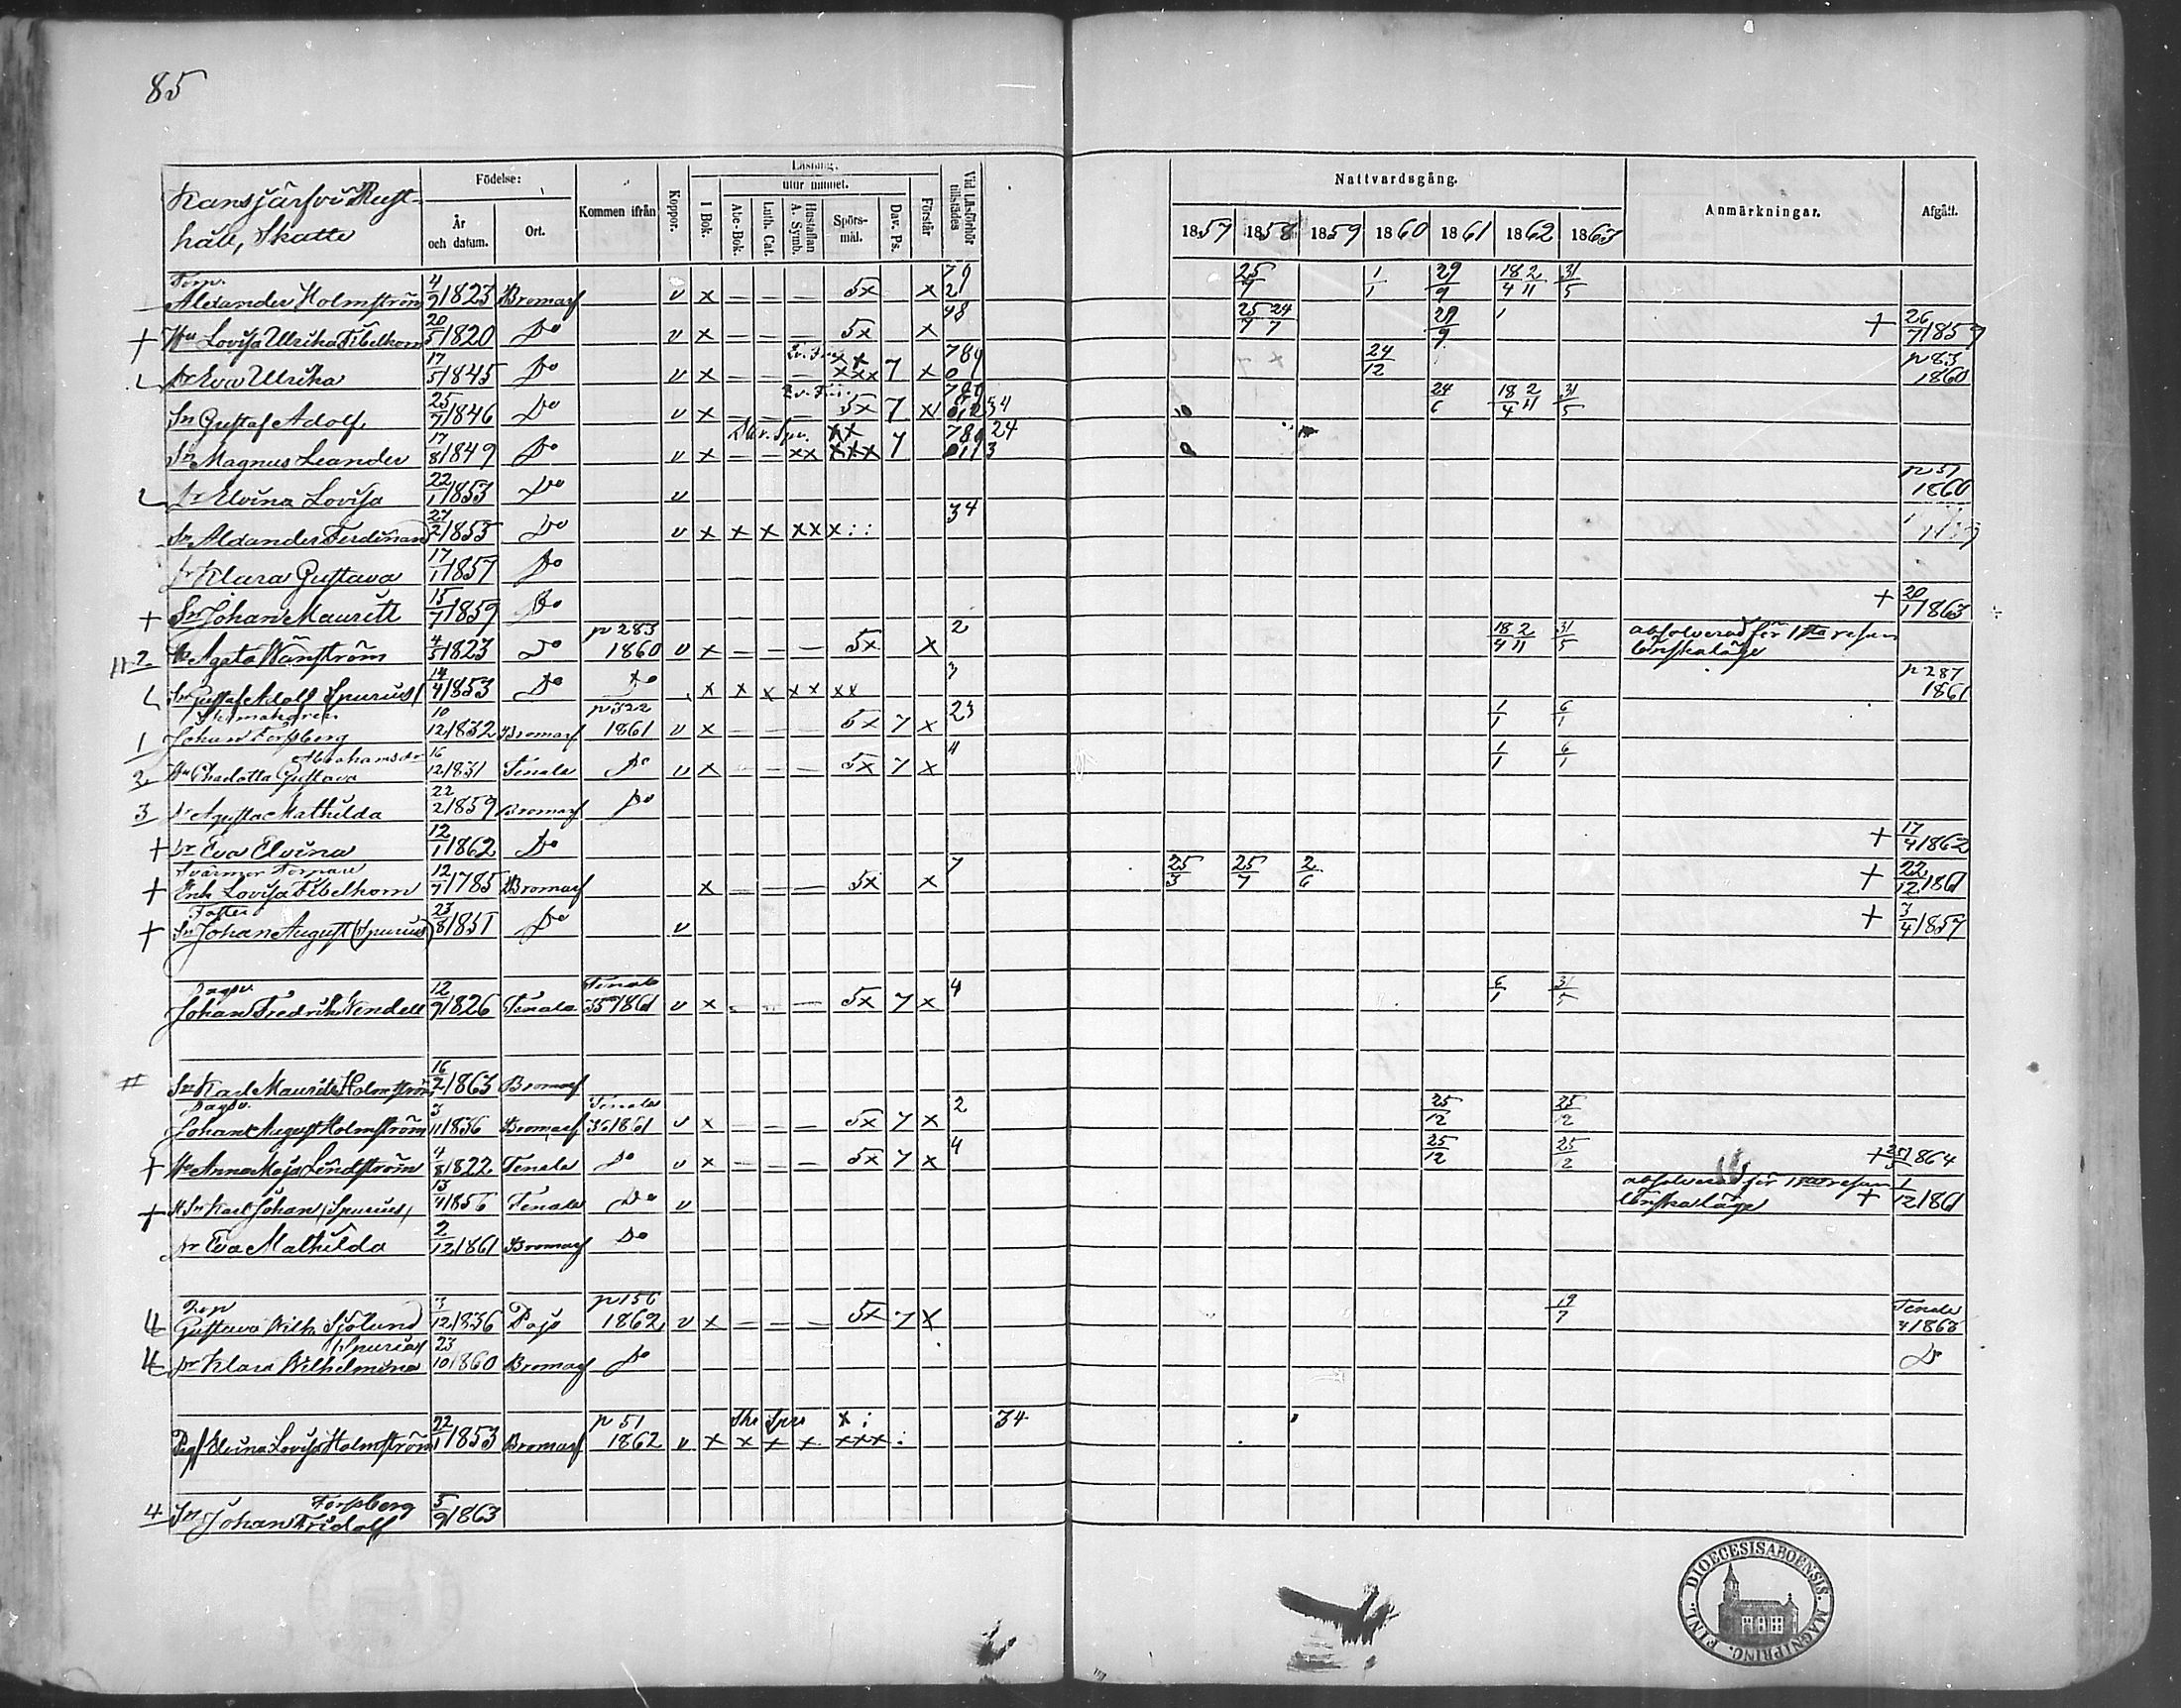 85
Kansjärfvi Rust-
håll, Skatte
Födelse:
År och datum.
Ort.
Kommen ifrån
Koppor.
Läsning.
I Bok.
utur minnet.
Abc-Bok.
Luth. Cat.
Hustaflan A. Symb.
Spörs-mål.
Dav. Ps.
Förstår
Vid Läsförhör tillstädes
Nattvardsgång.
1857 1858 1859 1860 1861 1862 1863
Anmärkningar.
Afgått.
Torp.
Alexander Holmström 4/9 1823 Bromarf v x — — — 5x x 79 2 25/7 1/1 29/9 18/4 2/11 31/5
+ Hu Lovisa Ulrika Fibelkorn 20/5 1820 Do v x — — — 5x x 48 25/7 24/7 29/9 + 26/7 1859
Dr Eva Ulrika 17/5 1845 Do v x — — — xx xxx 7 x 789 0 24/12 p 83 1860
Sn Gustaf Adolf 25/7 1846 Do v x — — — 5x 7 x 34 24/6 18/4 2/11 31/5
Sn Magnus Leander 17/8 1849 Do v x — — xx xx xxx 7 789 24 3
Dr Elvina Lovisa 22/1 1853 Do v p 51 1860
Sn Alexander Ferdinand 27/2 1855 Do v x x x xx x : : 34
Dr Klara Gustava 17/1 1857 Do
+ Sn Johan Mauritz 15/7 1859 Do + 20/1 1863
2 Agata Wänström 4/5 1823 Do p 283 1860 v x — — — 5x x 2 18/4 2/11 31/5 absolverad för 1sta resan lönskaläge
Sn Gustaf Adolf Spurius 14/4 1853 Do Do x x x xx xx 3 p 287 1861
1 Johan Forsberg 10/12 1832 Bromarf p 322 1861 v x — — — 5x 7 x 23 1/1 6/1
Abrahamsdr
2 Hu Charlotta Gustava 16/12 1831 Tenala Do v x — — — 5x 7 x 4 1/1 6/1
3 Dr Agusta Mathilda 22/2 1859 Bromarf Do
+ Dr Eva Elvina 12/1 1862 Do + 17/4 1862
Svärmor Torpare
+ Enk Lovisa Fibelkorn 12/7 1785 Bromarf x — — — 5x x 7 25/3 25/7 2/6 + 22/12 1861
+ Sn Johan August (Spurius) 23/8 1851 Do v + 3/4 1857
Dagsv.
Johan Fredrik Wendell 12/9 1826 Tenala Tenala 35 1861 v x — — — 5x 7 x 4 6/1 31/5
# Sn Karl Mauritz Holmström 16/2 1863 Bromarf
Dagsv.
Johan August Holmström 3/11 1836 Bromarf Tenala 36 1861 v x — — — 5x 7 x 2 25/12 25/12
+ Hu Anna Maja Lindström 4/8 1822 Tenala Do v x — — — 5x 7 x 4 25/12 25/12 + 25/3 1864
+ H Sn Karl Johan (Spurius) 13/4 1856 Tenala Do v absolverad för 1sta resan lönskaläge + 1/12 1861
Dr Eva Mathilda 2/12 1861 Bromarf Do
4 Gustava Wilh. Sjölund 3/12 1836 Pojo p 156 1862 v x — — — 5x 7 x 19/7 Tenala 4 1863
Spurius
4 Dr Klara Wilhelmina 23/10 1860 Bromarf Do Do
Pig Elvina Lovisa Holmström 22/1 1853 Bromarf p 51 1862 v x x x x x : xxx : 34
Forsberg
4 Sn Johan Fridolf 5/9 1863
DIOECESIS ABOENSIS. MAGNI PRINC. FINL.